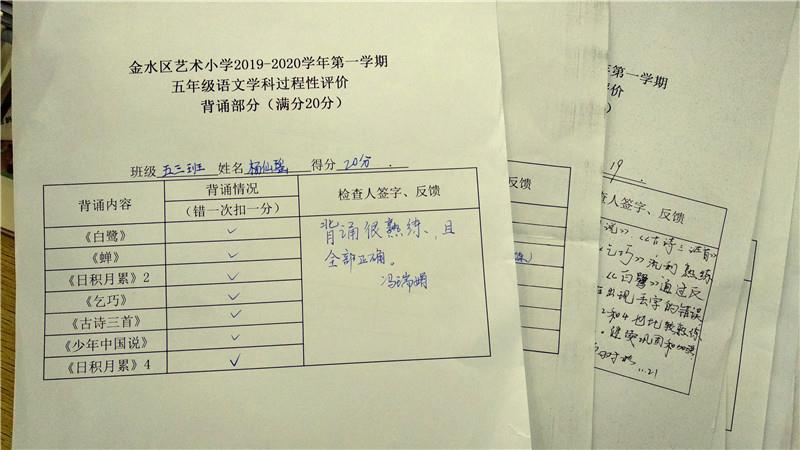 金水区艺术小学2019-2020学年第一学期
五年级语文学科过程性评价
背诵部分（满分20分）
班级 五三班 姓名 杨仙瑶 得分 20分.
背诵内容 背诵情况 检查人签字、反馈
（错一次扣一分）
《白鹭》 ✓
《蝉》 ✓
《日积月累》2 ✓
《乞巧》 ✓
《古诗三首》 ✓
《少年中国说》 ✓
《日积月累》4 ✓
背诵很熟练、且
全部正确。
冯瑞娟
反馈
年第一学期
评价
）
19.
查人签字、反馈
说》.《古诗三首》
《乞巧》流利熟练
《白鹭》通过反
出现丢字的错误
2和4也比较熟练,
继续巩固和加强